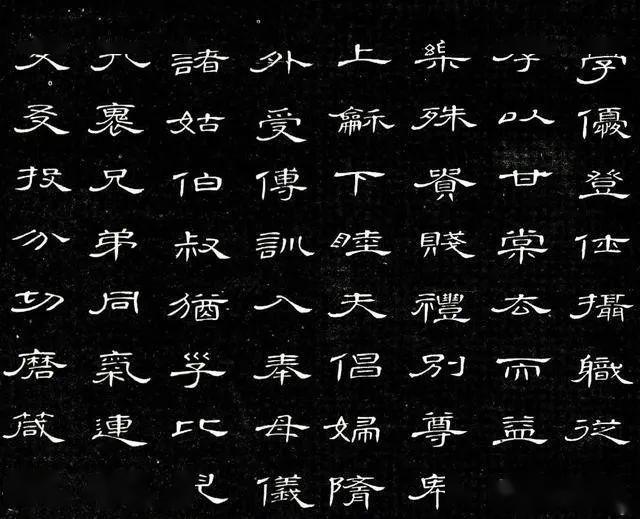 学優登仕攝職從
存以甘棠去而益
樂殊貴賤禮別尊卑
上龢下睦夫倡婦隨
外受傅訓入奉母儀
諸姑伯叔猶子比兒
孔懷兄弟同氣連
交友投分切磨箴